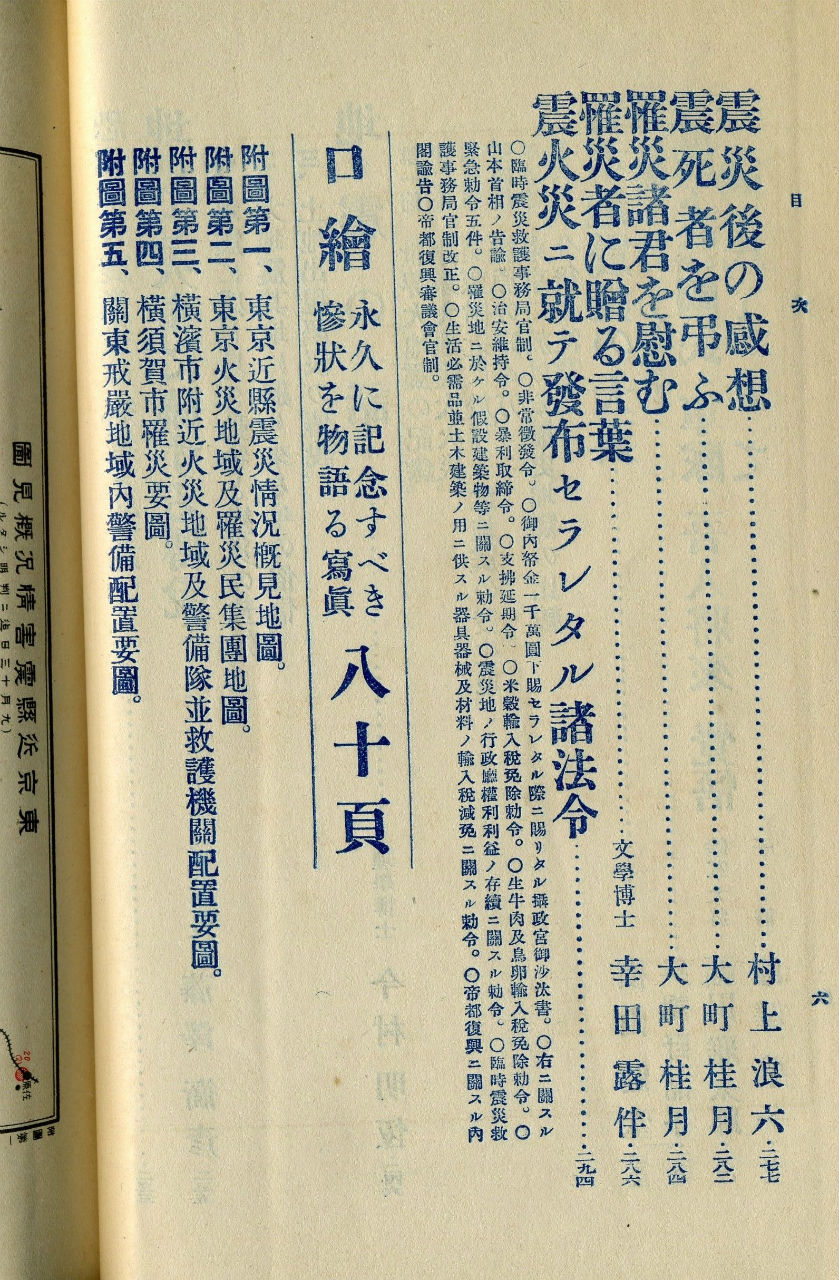 目次
六
震災後の感想……村上浪六…二七七
震死者を弔ふ……大町桂月…二八二
罹災諸君を慰む……大町桂月…二八四
罹災者に贈る言葉……文學博士 幸田露伴…二八六
震火災ニ就テ發布セラレタル諸法令……二九四
〇臨時震災救護事務局官制。〇非常徵發令。〇御內帑金一千萬圓下賜セラレタル際ニ賜リタル攝政宮御沙汰書。〇右ニ關スル
山本首相ノ告諭。〇治安維持令。〇暴利取締令。〇支拂延期令。〇米穀輸入稅免除勅令。〇生牛肉及鳥卵輸入稅免除勅令。〇
緊急勅令五件。〇罹災地ニ於ケル假設建築物等ニ關スル勅令。〇震災地ノ行政廳權利利益ノ存續ニ關スル勅令。〇臨時震災救
護事務局官制改正。〇生活必需品並土木建築ノ用ニ供スル器具器械及材料ノ輸入稅減免ニ關スル勅令。〇帝都復興ニ關スル內
閣諭告〇帝都復興審議會官制。
口繪 永久に記念すべき
慘狀を物語る寫眞 八十頁
附圖第一、東京近縣震災情況槪見地圖。
附圖第二、東京火災地域及罹災民集團地圖。
附圖第三、橫濱市附近火災地域及警備隊並救護機關配置要圖。
附圖第四、橫須賀市罹災要圖。
附圖第五、關東戒嚴地域內警備配置要圖。
東京近縣震害情況槪見圖
(九月十三日復ニ判明シタル
附圖第一
20